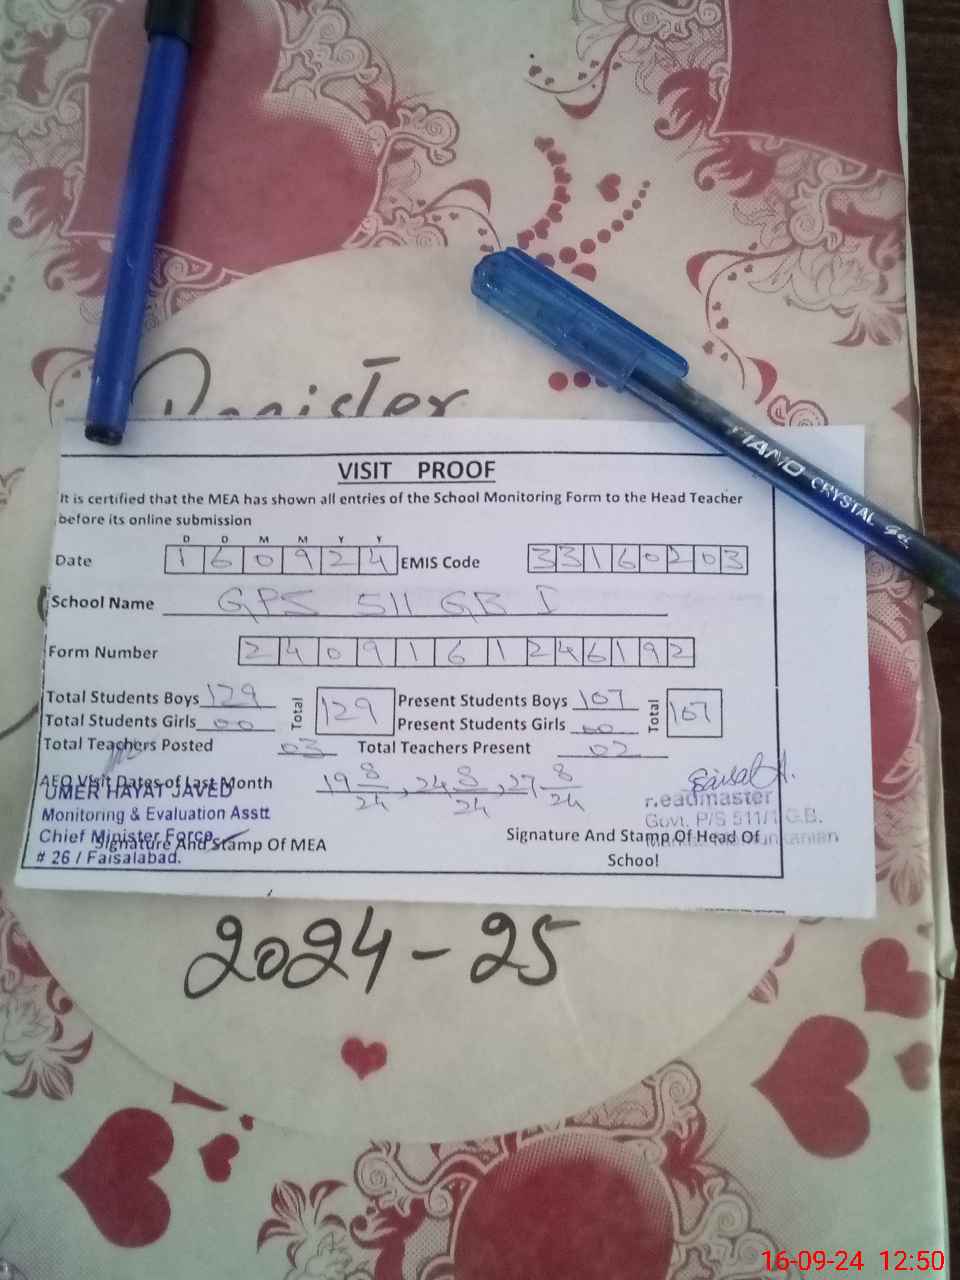 Register
VISIT PROOF
It is certified that the MEA has shown all entries of the School Monitoring Form to the Head Teacher
before its online submission
D D M M Y Y
Date 1 6 0 9 2 4 EMIS Code 3 3 1 6 0 2 0 3
School Name GPS 511 GB I
Form Number 2 4 0 9 1 6 1 2 4 6 1 9 2
Total Students Boys 129 Total 129 Present Students Boys 107 Total 107
Total Students Girls 00 Present Students Girls 00
Total Teachers Posted 03 Total Teachers Present 02
AEO Visit Dates of Last Month 19 8/24, 24 8/24, 27 8/24
UMER HAYAT JAVED
Monitoring & Evaluation Asstt
Chief Minister Force
# 26 / Faisalabad.
Signature And Stamp Of MEA
Headmaster
Govt. P/S 511/1 G.B.
Signature And Stamp Of Head Of
School
PIANO CRYSTAL Gel
2024-25
16-09-24 12:50